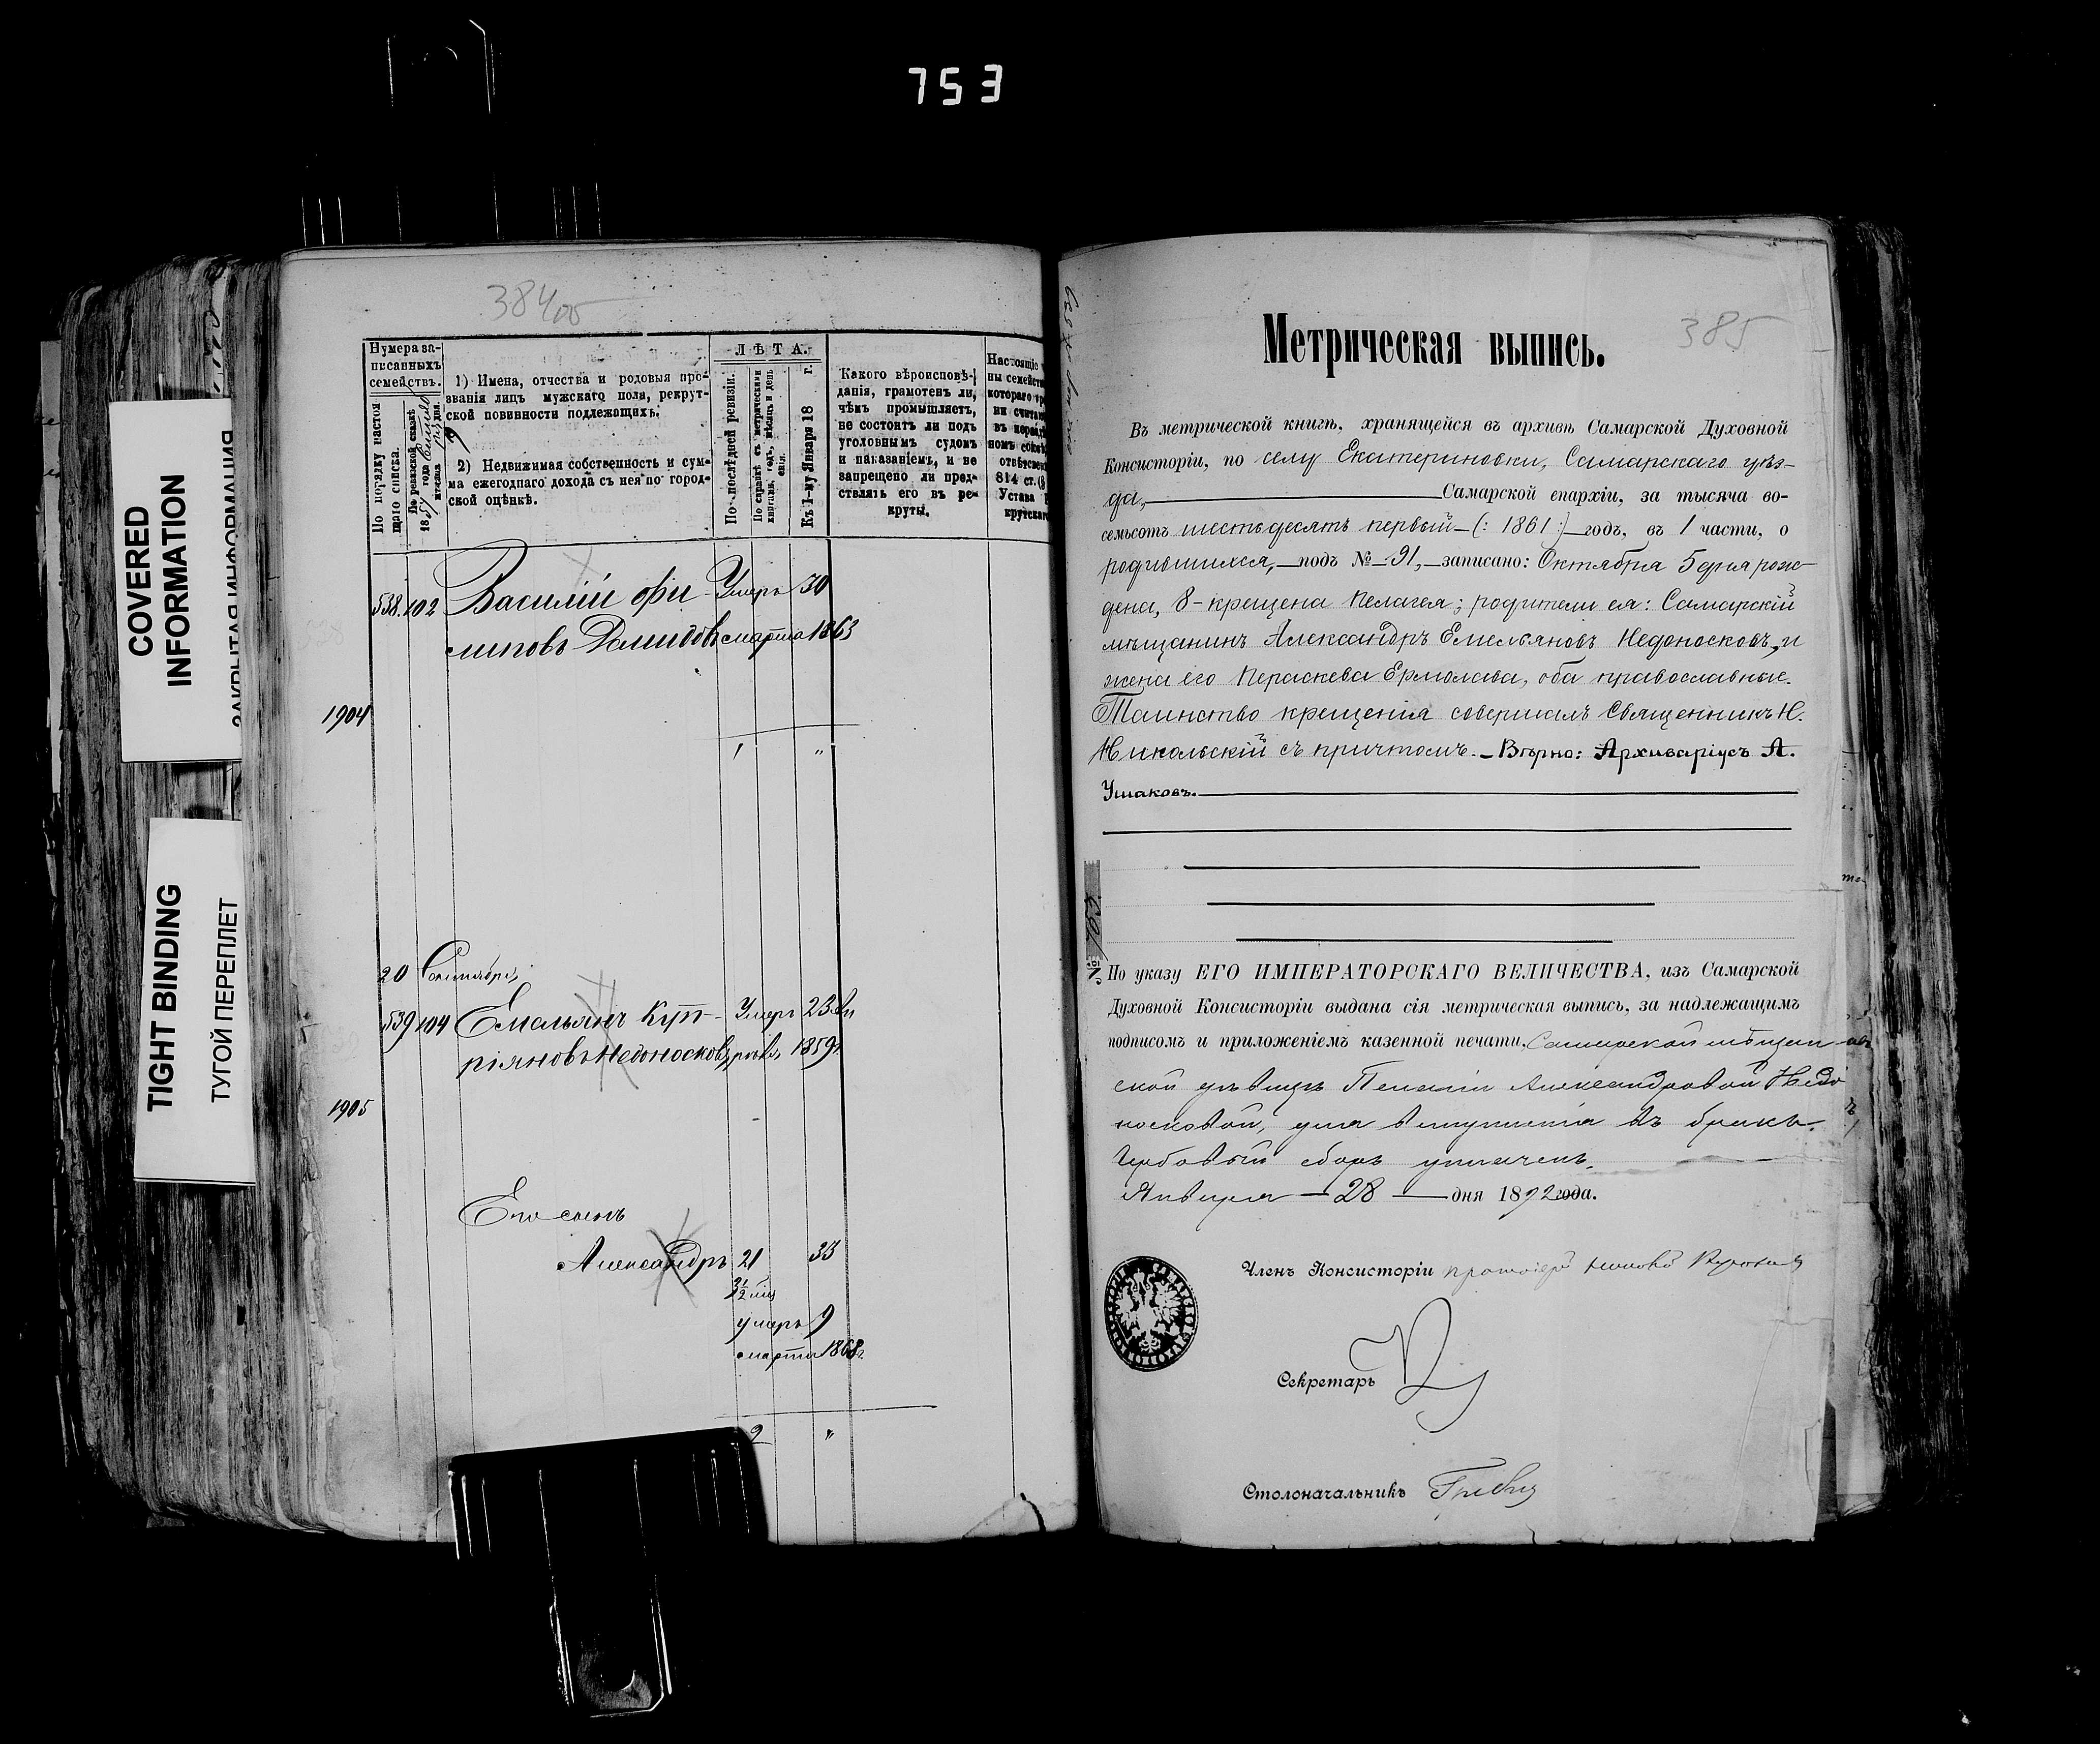 753
COVERED
INFORMATION
ЗАКРЫТАЯ ИНФОРМАЦИЯ
TIGHT BINDING
ТУГОЙ ПЕРЕПЛЕТ
384об
Нумера за-
писанныхъ
семействъ.
По порядку настоя
щаго списка.
По ревизской сказкѣ
18 года
1) Имена, отчества и родовыя про-
званія лицъ мужскаго пола, рекрут-
ской повинности подлежащихъ.
2) Недвижимая собственность и сум-
ма ежегоднаго дохода съ нея по город-
ской оцѣнкѣ.
ЛѢТА.
По послѣдней ревизіи.
По справкѣ съ метрическими
книгами, годъ, мѣсяцъ и день
Къ 1-му Января 18 г.
Какого вѣроисповѣ-
данія, грамотенъ ли,
чѣмъ промышляетъ,
не состоитъ ли подъ
уголовнымъ судомъ
и наказаніемъ, и не
запрещено ли пред-
ставлять его въ ре-
круты.
Настоящіе
ны семейст
котораго
ни счита
въ
номъ
отвѣтствен
814 ст.
Устава
крутскаг
538. 102 Василій Фи- Умеръ 30
липовъ Демидовъ марта 1863
1904
20 Сентября
539 104 Емельянъ Куп- Умеръ 23
ріяновъ Недоносковъ 1859
1905
Его сынъ
Александръ 21 33
3 1/2 мѣс
умеръ 9
марта 1868г.
2 "
385
Метрическая выпись.
Въ метрической книгѣ, хранящейся въ архивѣ Самарской Духовной
Консисторіи, по селу Екатериновки, Самарскаго уѣз-
да, Самарской епархіи, за тысяча во-
семьсотъ шестьдесятъ первый (: 1861 :) годъ, въ 1 части, о
родившихся, подъ № 91, записано: Октября 5 дня рож-
дена, 8 - крещена Пелагея; родители ея: Самарскій
мѣщанинъ Александръ Емельяновъ Недоносковъ, и
жена его Параскева Ермолаева, оба православные.
Таинство крещенія совершалъ Священникъ Н.
Никольскій съ причтомъ. - Вѣрно: Архиваріусъ А.
Ушаковъ.
По указу ЕГО ИМПЕРАТОРСКАГО ВЕЛИЧЕСТВА, изъ Самарской
Духовной Консисторіи выдана сія метрическая выпись, за надлежащимъ
подписомъ и приложеніемъ казенной печати, Самарской мѣщан-
ской дѣвицѣ Пелагіи Александровой Недо
носковой, для вступленія въ бракъ.
Гербовый сборъ уплаченъ.
Января 28 дня 1892 года.
Членъ Консисторіи протоіерей
Секретарь
Столоначальникъ